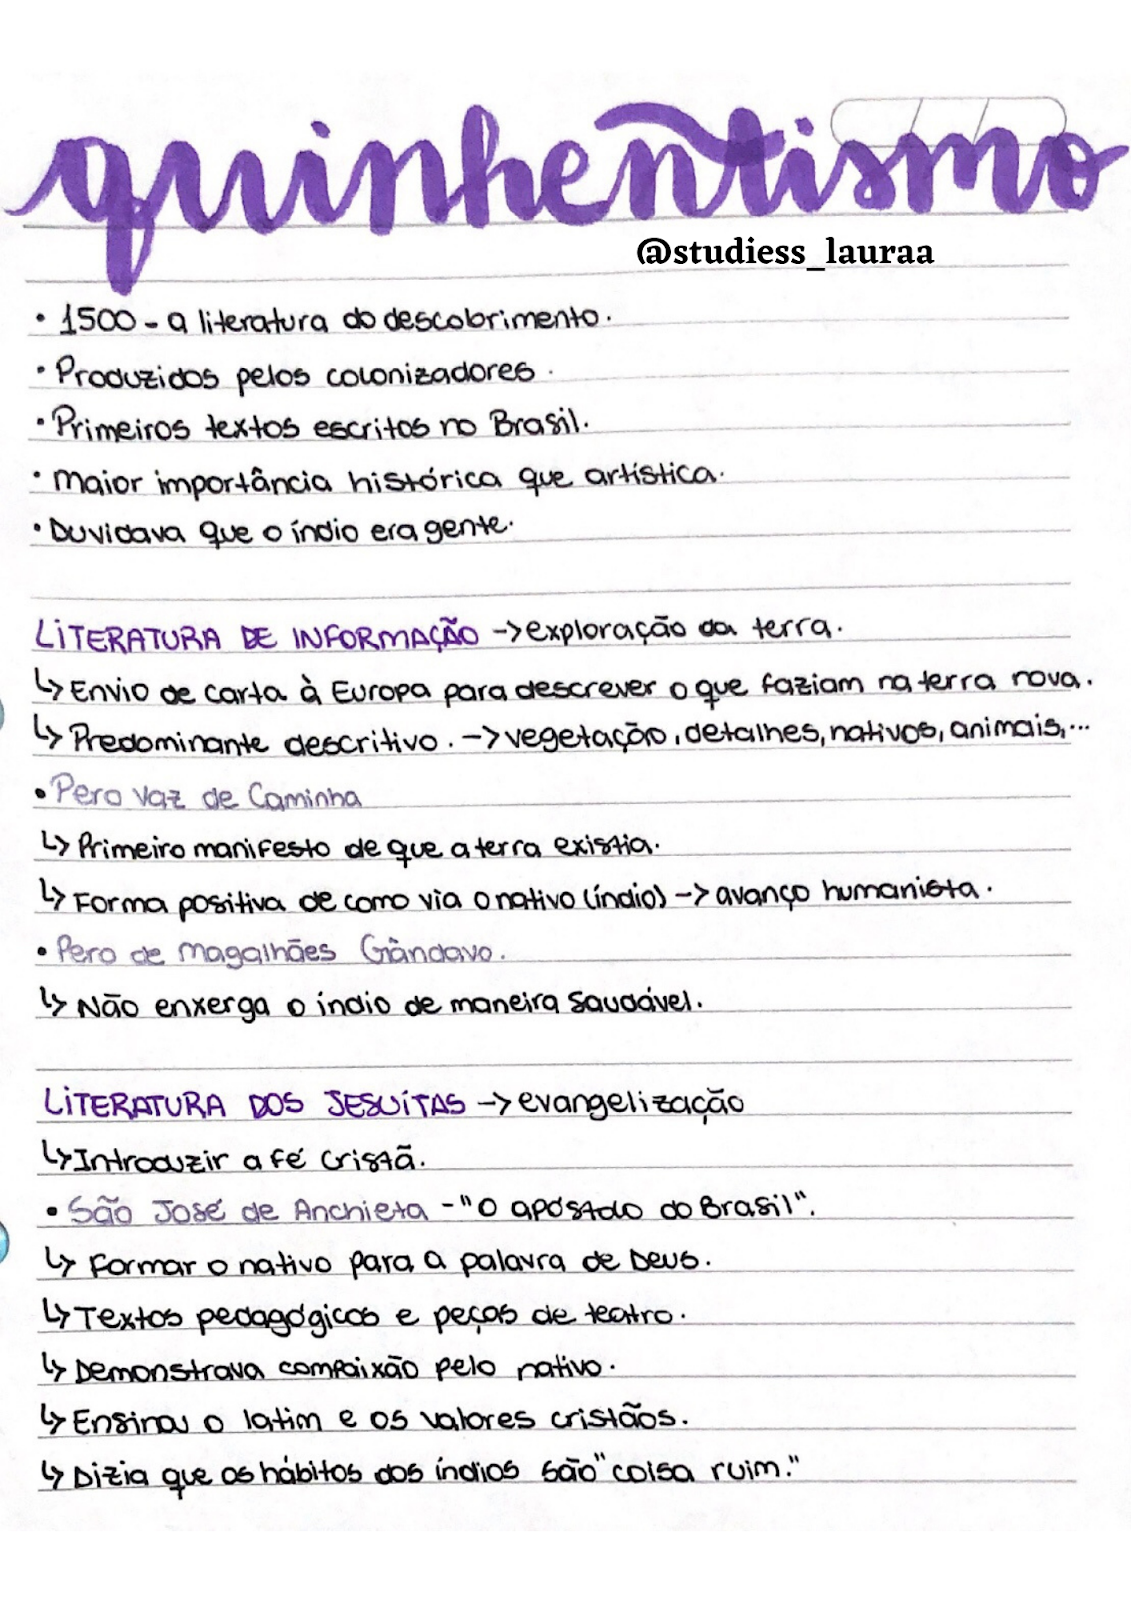 quinhentismo
@studiess_lauraa
• 1500 - a literatura do descobrimento.
• Produzidos pelos colonizadores.
• Primeiros textos escritos no Brasil.
• maior importância histórica que artística.
• Duvidava que o índio era gente.
LITERATURA DE INFORMAÇÃO -> exploração da terra.
↳ Envio de carta à Europa para descrever o que faziam na terra nova.
↳ Predominante descritivo. -> vegetação, detalhes, nativos, animais,...
• Pero Vaz de Caminha
↳ Primeiro manifesto de que a terra existia.
↳ Forma positiva de como via o nativo (índio) -> avanço humanista.
• Pero de magalhães Gândavo.
↳ Não enxerga o índio de maneira saudável.
LITERATURA DOS JESUÍTAS -> evangelização
↳ Introduzir a fé cristã.
• São José de Anchieta - "O apóstolo do Brasil".
↳ Formar o nativo para a palavra de Deus.
↳ Textos pedagógicos e peças de teatro.
↳ Demonstrava compaixão pelo nativo.
↳ Ensinou o latim e os valores cristãos.
↳ Dizia que os hábitos dos índios são "coisa ruim."